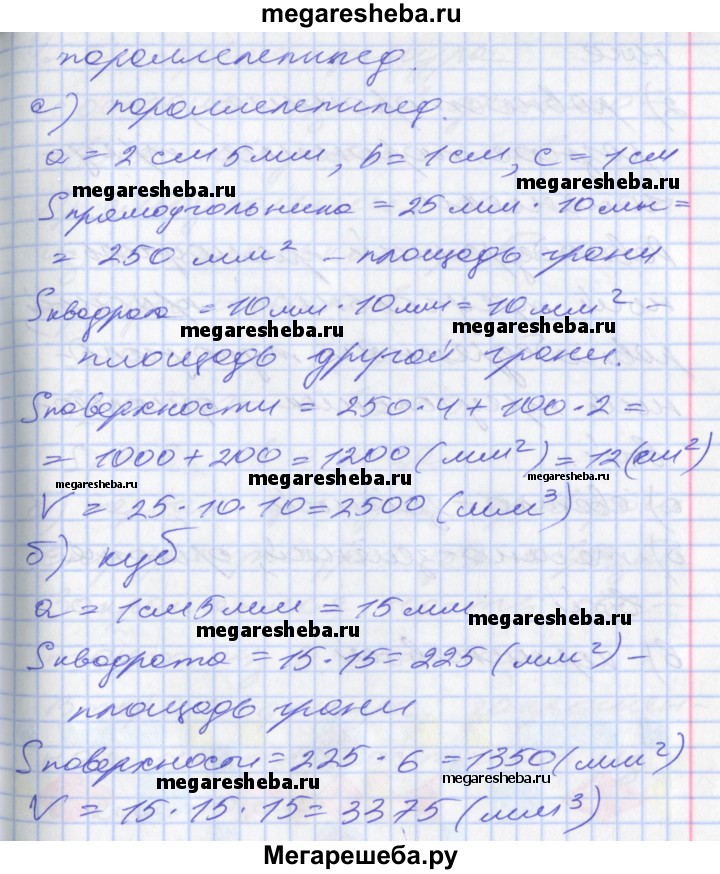 megaresheba.ru
пароллепипед.
а) пароллелепипед.
a = 2 см 5 мм, b = 1 см, c = 1 см
megaresheba.ru megaresheba.ru
Sпрямоугольника = 25 мм · 10 мм =
= 250 мм² – площадь грани
Sквадрата = 10 мм · 10 мм = 10 мм² –
megaresheba.ru megaresheba.ru
площадь другой грани.
Sповерхности = 250 · 4 + 100 · 2 =
= 1000 + 200 = 1200 (мм²) = 12 (см²)
megaresheba.ru megaresheba.ru
V = 25 · 10 · 10 = 2500 (мм³)
б) куб
a = 1 см 5 мм = 15 мм
megaresheba.ru megaresheba.ru
Sквадрата = 15 · 15 = 225 (мм²) –
площадь грани
Sповерхности = 225 · 6 = 1350 (мм²)
megaresheba.ru megaresheba.ru
V = 15 · 15 · 15 = 3375 (мм³)
Мегарешеба.ру